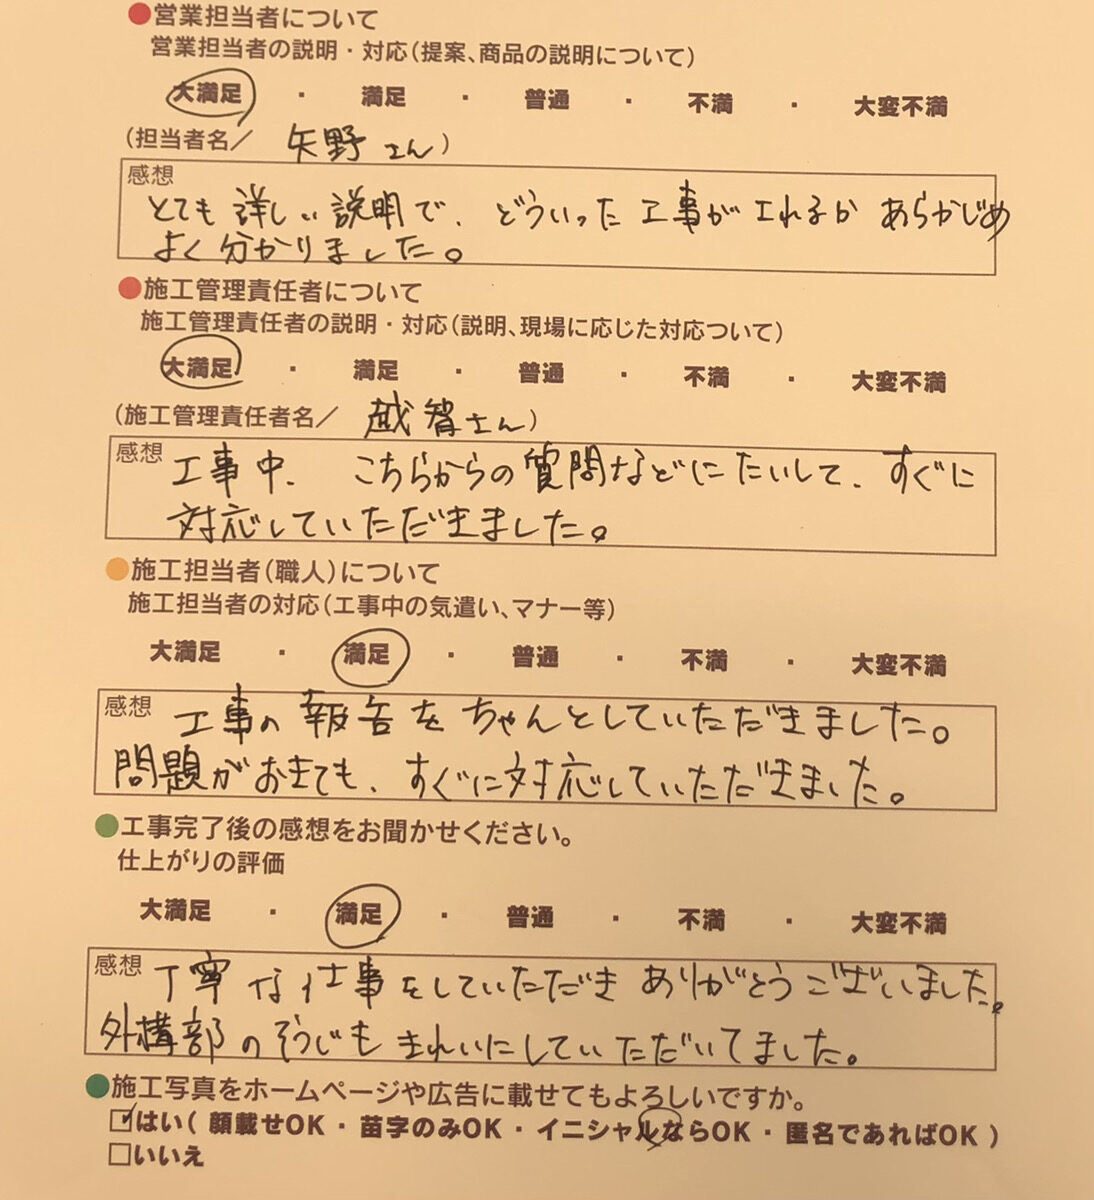 ●営業担当者について
営業担当者の説明・対応(提案、商品の説明について)
大満足 ・ 満足 ・ 普通 ・ 不満 ・ 大変不満
(担当者名／ 矢野さん)
感想
とても詳しい説明で、どういった工事が工れるか あらかじめ
よく分かりました。
●施工管理責任者について
施工管理責任者の説明・対応(説明、現場に応じた対応ついて)
大満足 ・ 満足 ・ 普通 ・ 不満 ・ 大変不満
(施工管理責任者名／ 越智さん)
感想
工事中、こちらからの質問などにたいして、すぐに
対応していただきました。
●施工担当者(職人)について
施工担当者の対応(工事中の気遣い、マナー等)
大満足 ・ 満足 ・ 普通 ・ 不満 ・ 大変不満
感想
工事の報告をちゃんとしていただきました。
問題がおきても、すぐに対応していただきました。
●工事完了後の感想をお聞かせください。
仕上がりの評価
大満足 ・ 満足 ・ 普通 ・ 不満 ・ 大変不満
感想
丁寧な仕事をしていただき ありがとうございました。
外構部のそうじもきれいにしていただいてました。
●施工写真をホームページや広告に載せてもよろしいですか。
☑はい( 顔載せOK・苗字のみOK・イニシャルならOK・匿名であればOK )
□いいえ